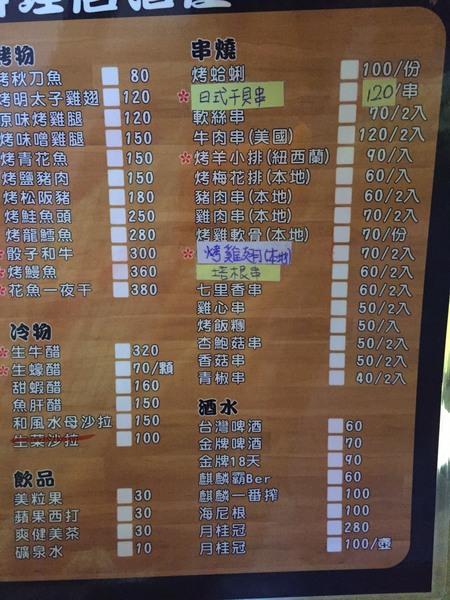 烤物
烤秋刀魚 80
烤明太子雞翅 120
原味烤雞腿 120
烤味噌雞腿 150
烤青花魚 150
烤鹽豬肉 150
烤松阪豬 180
烤鮭魚頭 250
烤龍鱈魚 280
*骰子和牛 300
*烤鰻魚 360
*花魚一夜干 380
冷物
*生牛醋 320
*生蠔醋 70/顆
甜蝦醋 160
魚肝醋 150
和風水母沙拉 150
生菜沙拉 100
飲品
美粒果 30
蘋果西打 30
爽健美茶 30
礦泉水 10
串燒
烤蛤蜊 100/份
*日式干貝串 120/串
軟絲串 70/2入
牛肉串(美國) 120/2入
*烤羊小排(紐西蘭) 90/入
烤梅花排(本地) 60/入
豬肉串(本地) 60/2入
雞肉串(本地) 70/2入
烤雞軟骨(本地) 70/份
*烤雞翅(本地) 70/2入
培根串 60/2入
七里香串 60/2入
雞心串 50/2入
烤飯糰 50/入
杏鮑菇串 50/2入
香菇串 50/2入
青椒串 40/2入
酒水
台灣啤酒 60
金牌啤酒 70
金牌18天 90
麒麟霸Ber 60
麒麟一番搾 100
海尼根 100
月桂冠 280
月桂冠 100/壺